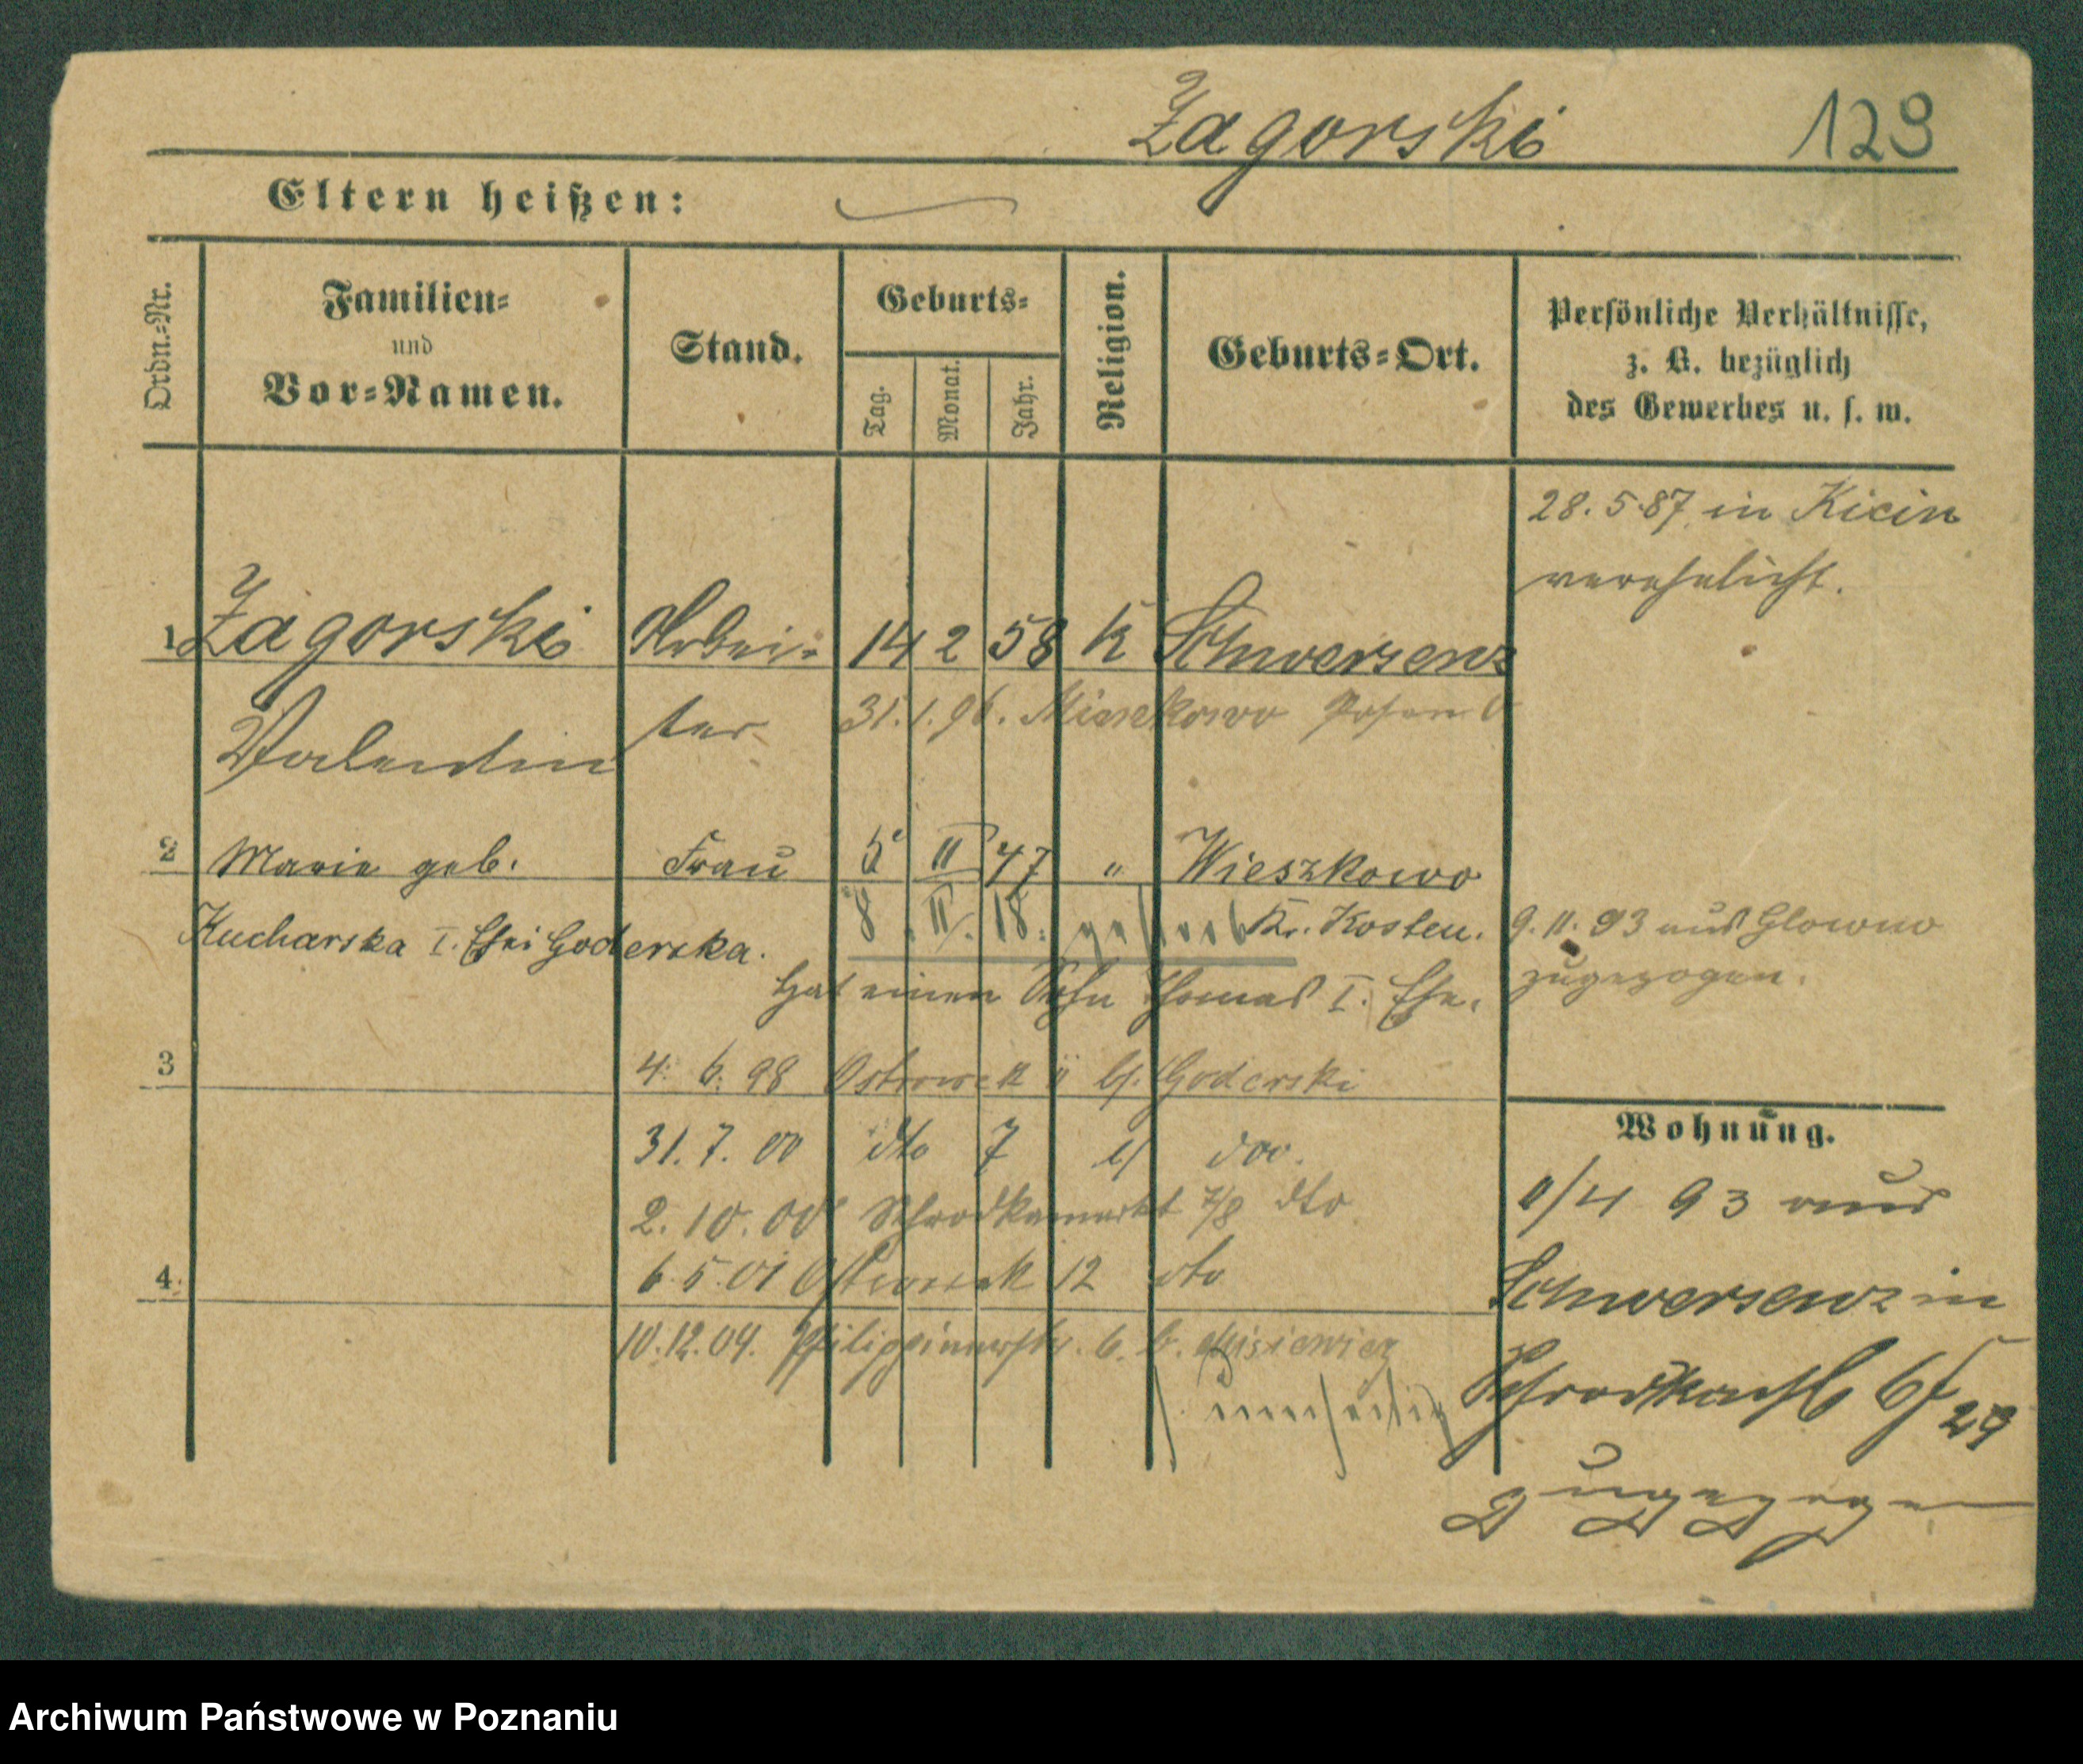 Zagorski 129
Eltern heißen:
Ordn.=Nr.
Familien=
und
Vor=Namen.
Stand.
Geburts=
Tag.
Monat.
Jahr.
Religion.
Geburts=Ort.
Persönliche Verhältnisse,
z. B. bezüglich
des Gewerbes u. s. w.
28. 5. 87 in Kicin
verehelicht.
1 Zagorski Arbei= 14 2 58 K Schwersenz
Valentin ter 31. 1. 96. Posen
2 Marie geb. Frau 5 II 47 " Wieszkowo
Kucharska I. Ehe Goderska. 8. II. 18. gestorb Kr. Kosten.
9. 11. 93 aus Glowno
zugezogen.
Hat einen Sohn Thomas I. Ehe.
3 4. 6. 98 Ostrowek 11 b/. Goderski
31. 7. 00 dto 7 b/ dto.
2. 10. 00 Schrodkamarkt 7/8 dto
4. 6. 5. 01 Ostrowek 12 dto
10. 12. 04. Philippinerstr. 6. b. Misiewicz
umseitig
Wohnung.
1/4 93 aus
Schwersenz in
29
zugezogen
Archiwum Państwowe w Poznaniu